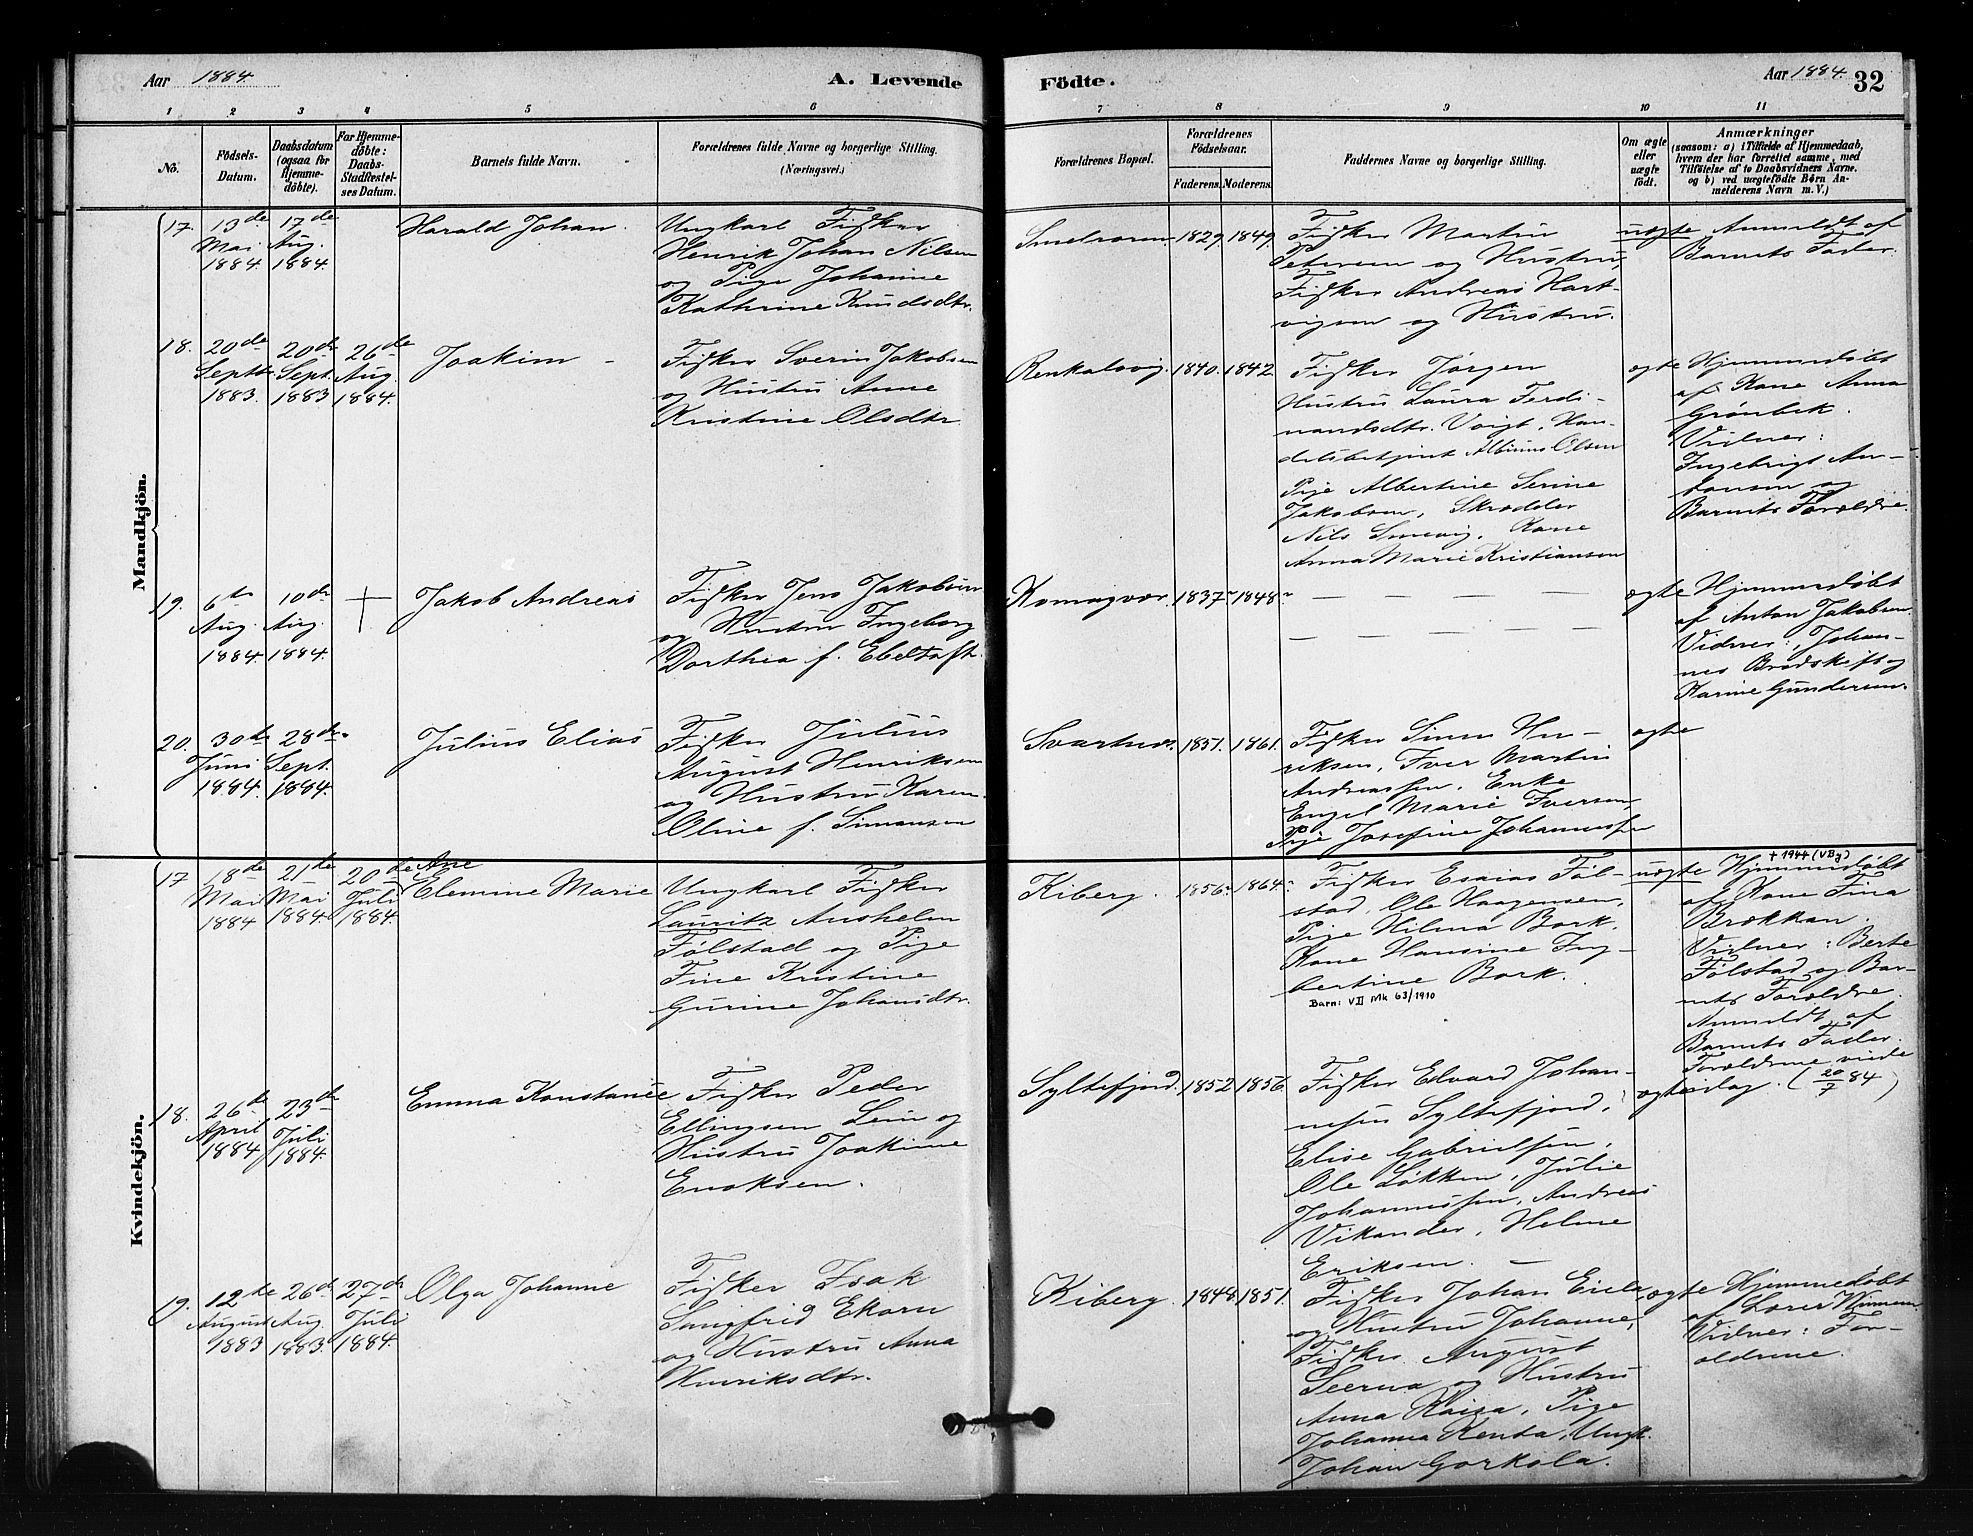 Aar 1884.
A. Levende
Födte.
Aar 1884.
32
1 2 3 4 5 6 7 8 9 10 11
No.
Födsels-
Datum.
Daabsdatum
(ogsaa for
Hjemme-
döbte).
For Hjemme-
döbte:
Daabs-
Stadfæstel-
ses Datum.
Barnets fulde Navn.
Forældrenes fulde Navne og borgerlige Stilling.
(Næringsvei.)
Forældrenes Bopæl.
Forældrenes
Födselsaar.
Faderens. Moderens.
Faddernes Navne og borgerlige Stilling.
Om ægte
eller
uægte
födt.
Anmærkninger
(saasom: a) i Tilfælde af Hjemmedaab,
hvem der har forrettet samme, med
Tilföielse af to Daabsvidners Navne.
og b) ved uægtefödte Børn An-
melderens Navn m. V.)
Mandkjön.
17.
13de
Mai
1884.
17de
Aug.
1884.
Harald Johan.
Ungkarl Fisker
Henrik Johan Nilsen
og Pige Johanne
Kathrine Knudsdtr.
Smelroren
1829. 1849.
Fisker Martin
Petersen og Hustru,
Fisker Andreas Hart-
vigsen og Hustru.
uægte
Anmeldt af
Barnets Fader.
18.
20de
Septbr.
1883.
20de
Sept.
1883
26de
Aug.
1884.
Joakim –
Fisker Sverin Jakobsen
og Hustru Anne
Kristine Olsdtr.
Renkalsvig.
1840. 1842
Fisker Jørgen
Hustru Laura Ferdi-
nandsdtr. Voigt, Han-
delsbetjent Albinus Olsen
Pige Albertine Serine
Jakobsen, Skrædder
Nils Smevig, Kone
Anna Marie Kristiansen
ægte
Hjemmedøbt
af Kone Anna
Grønbek.
Vidner:
Ingebrigt An-
tonsen og
Barnets Forældre.
19.
6te
Aug.
1884.
10de
Aug.
1884.
Jakob Andreas
Fisker Jens Jakobsen
og Hustru Ingeborg
Dorthea f. Ebeltoft.
Komagvær.
1837. 1848.
ægte
Hjemmedøbt
af Anton Jakobsen.
Vidner: Johan-
nes Brodskift og
Karine Gundersen.
20.
30te
Juni
1884.
28de
Sept.
1884.
Julius Elias
Fisker Julius
August Henriksen
og Hustru Karen
Oline f. Simonsen
Svartnes.
1851. 1861.
Fisker Simon Hen-
riksen, Iver Martin
Andreassen, Enke
Engel Marie Iversen,
Pige Josefine Johannessen
ægte
Kvindekjön.
17
18de
Mai
1884
21de
Mai
1884.
20de
Juli
1884.
Ane
Elemine Marie
Ungkarl Fisker
Lauritz Anshelm
Følstad og Pige
Fine Kristine
Gurine Johansdtr.
Kiberg.
1856. 1864.
Fisker Esaias Føl-
stad, Ole Haagensen,
Pige Hilma Bork.
Kone Hansine Ing-
bertine Bork.
Barn: VII Mk 63/1910
uægte
+ 1944 (VBy)
Hjemmedøbt
af Kone Fina
Brækkan.
Vidner: Berte
Følstad og Bar-
nets Forældre.
Anmeldt af
Barnets Fader.
Forældrene viede
idag. (20/7 84)
18.
26de
April
1884
23de
Juli
1884.
Emma Konstance
Fisker Peder
Ellingsen Lein og
Hustru Joakime
Enoksen.
Syltefjord.
1852 1856
Fisker Edvard Johan-
nesen Syltefjord,
Elise Gabrielsen,
Ole Løkken, Julie
Johannessen, Andreas
Vikander, Helene
Eriksen. –
ægte
19.
12te
August
1883
26de
Aug.
1883.
27de
Juli
1884.
Olga Johanne
Fisker Isak
Sangfrid Ekorn
og Hustru Anna
Henriksdtr.
Kiberg.
1848. 1851.
Fisker Johan Eriks
og Hustru Johanne,
Fisker August
Seerva og Hustru
Anna Kaisa, Pige
Johanna Kenta, Ungk.
Johan Gorkola.
ægte
Hjemmedøbt
af Lærer
Vidner: For-
ældrene.